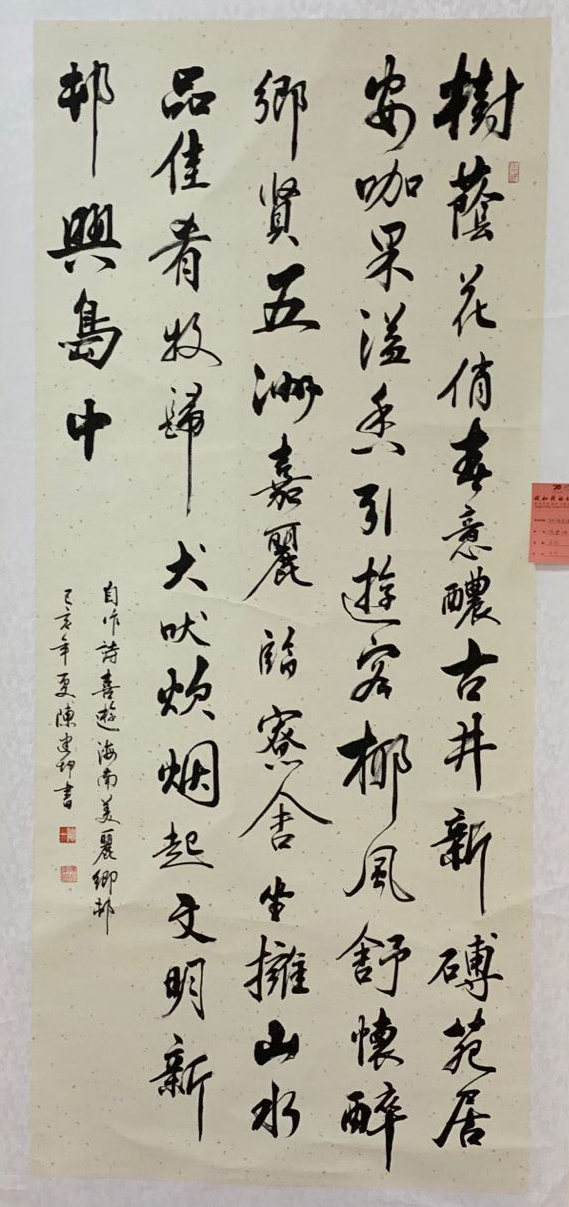 樹蔭花俏春意醲古井新磚苑居
安咖果溢香引遊客椰風舒懷醉
鄉賢五洲嘉麗詣寮舍坐擁山水
品佳肴牧歸犬吠炊烟起文明新
邨興島中
自作詩喜遊海南美麗鄉邨
己亥年夏陳建坤書